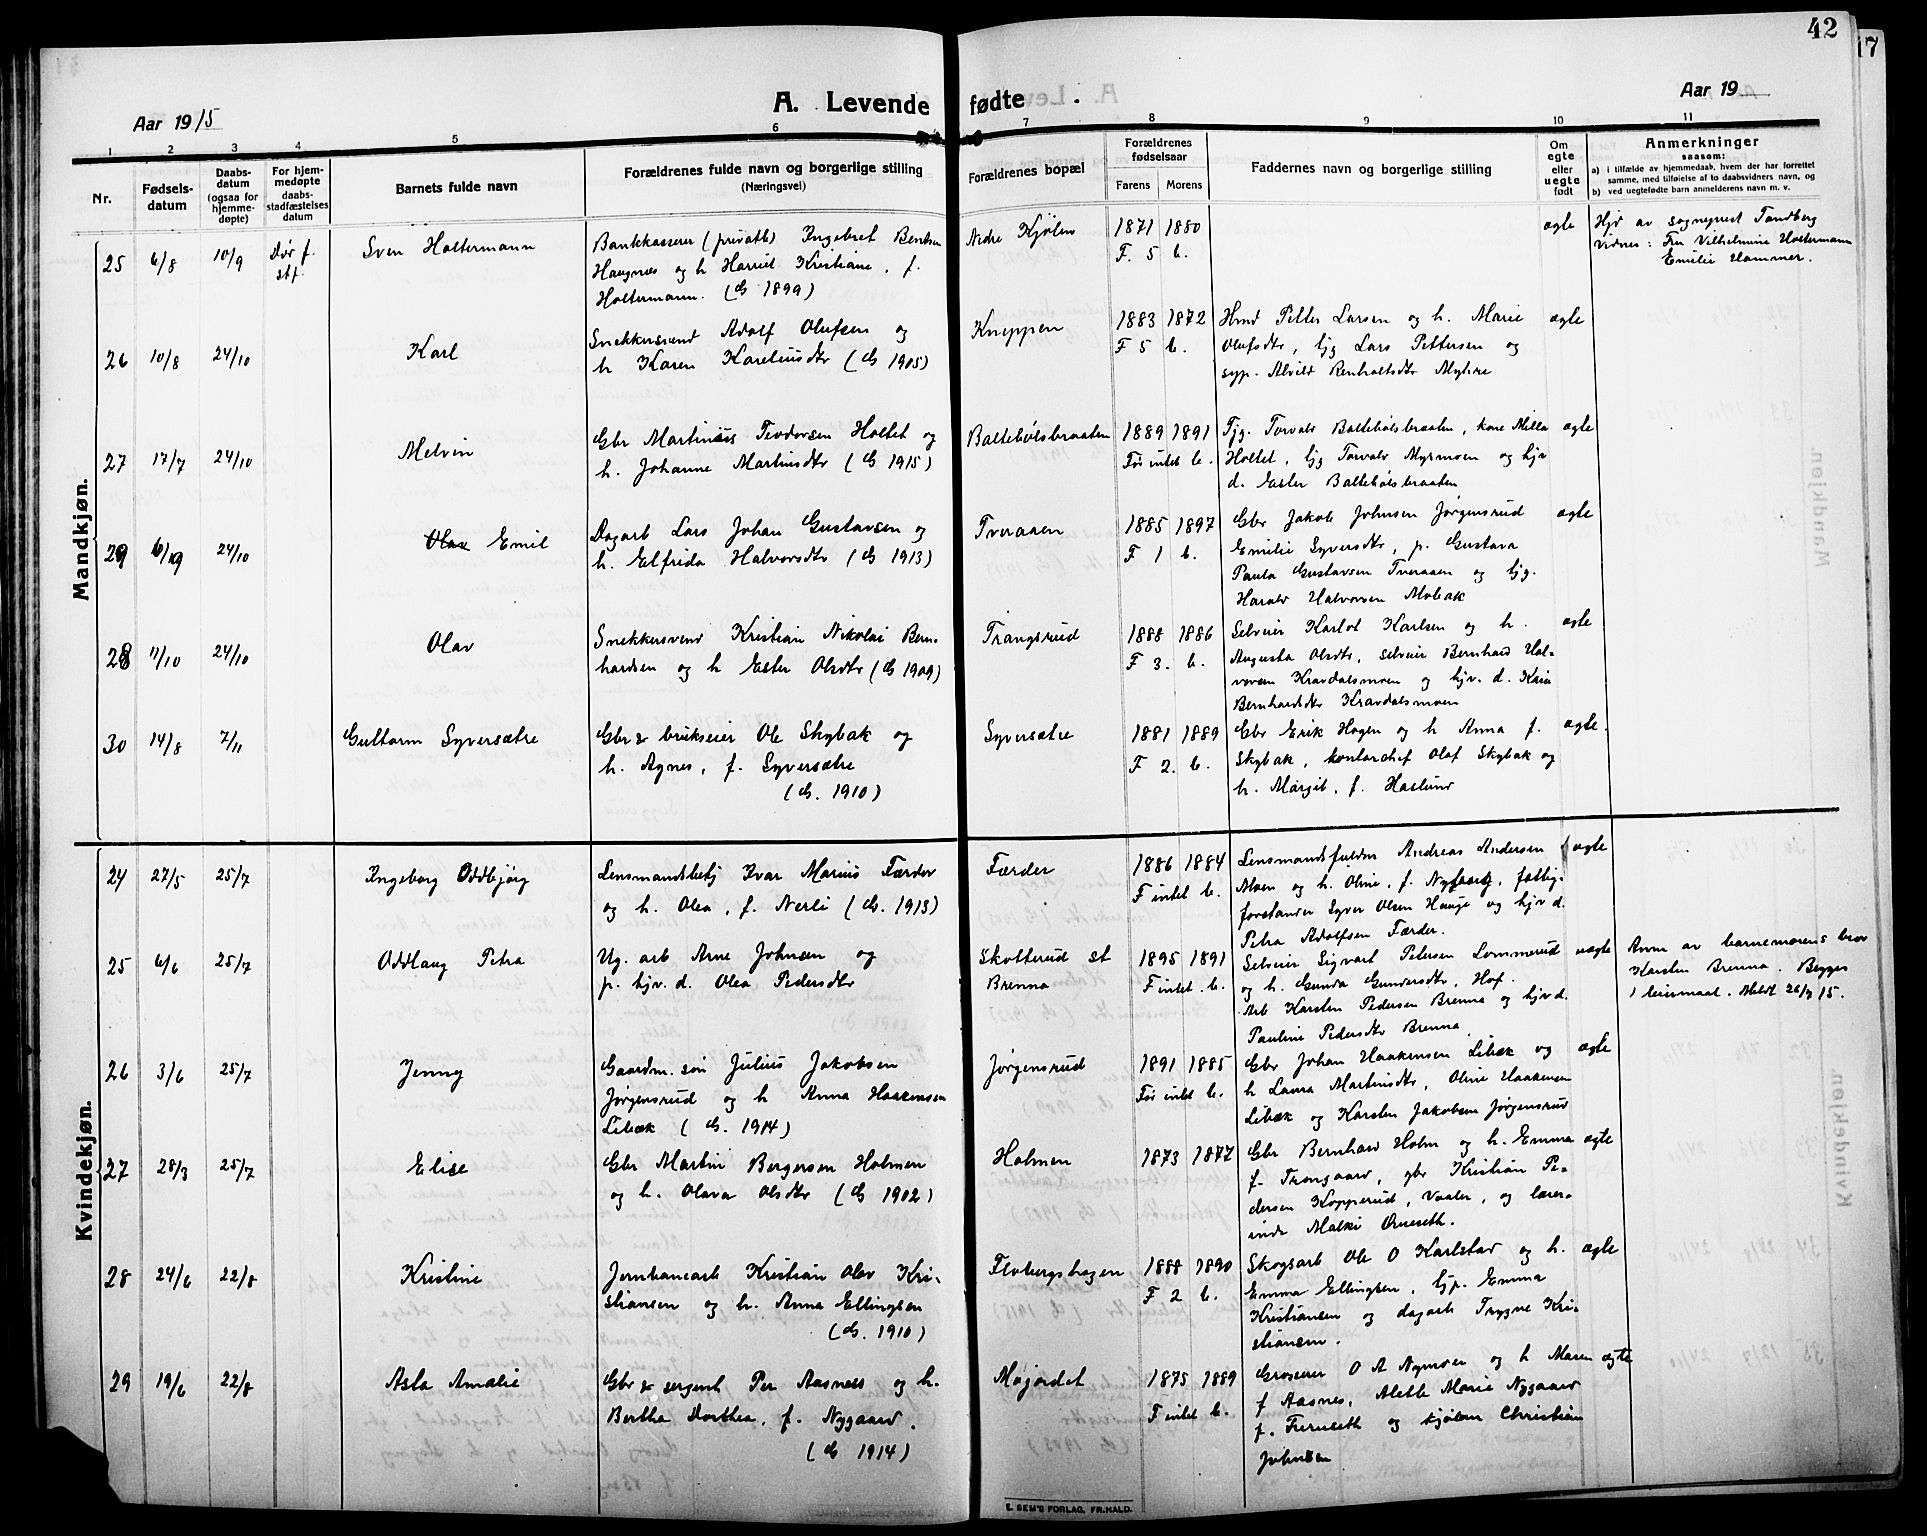 42
17
A. Levende fødte.
Aar 1915
Aar 19
1 2 3 4 5 6 7 8 9 10 11
Nr.
Fødsels-
datum
Daabs-
datum
(ogsaa for
hjemme-
døpte)
For hjem-
medøpte
daabs-
stadfæstelses
datum
Barnets fulde navn
Forældrenes fulde navn og borgerlige stilling
(Næringsvei)
Forældrenes bopæl
Forældrenes
fødselsaar
Farens Morens
Faddernes navn og borgerlige stilling
Om
egte
eller
uegte
født
Anmerkninger
saasom:
a) i tilfælde av hjemmedaab, hvem der har forrettet
samme, med tilføielse af to daabsvidners navn, og
b) ved uegtefødte barn anmelderens navn m. v.
Mandkjøn.
25 6/8 10/9 Dør f.
stf.
Sven Holtermann
Bankkasserer (privatb) Ingebret Benhn
Haugnæs og h Harriet Kristiane, f.
Holtermann. (G 1899)
Nedre Kjølen
1871 1880
F. 5 b.
egte
Hjd av sogneprest Tandberg
Vidner: Fru Vilhelmine Holtermann
Emilie Hammer.
26 10/8 24/10
Karl
Snekkersvend Adolf Olufsen og
h Karen Kareliusdtr (G 1905)
Kneppen
1883 1872
F 5 b.
Hmd Petter Larsen og h. Marie
Olufsdtr, tjg Lars Pettersen og
syp. Alvild Renholtsdtr Myhre
egte
27 17/7 24/10
Melvin
Gbr Martinius Teodorsen Holtet og
h. Johanne Martinsdtr (G 1915)
Baltebølsbraaten
1889 1891
Før intet b.
Tjg. Torvald Baltebølsbraaten, kone Milla
Holtet, tjg Torvald Myrmoen og hjv
d. Ester Baltebølsbraaten
egte
29 6/19 24/10
Olav Emil
Dagarb Lars Johan Gustavsen og
h. Elfrida Halvorsdtr (G 1913)
Tveraaen
1885 1897
F 1 b.
Gbr Jakob Johnsen Jørgensrud
Emilie Syversdtr, p. Gustava
Paula Gustavsen Tveraaen og tjg.
Harald Halvorsen Mobæk
egte
28 11/10 24/10
Olav
Snekkersvend Kristian Nikolai Bern-
hardsen og h Ester Olsdtr (G 1909)
Trangsrud
1888 1886
F 3. b.
Selveier Karlot Karlsen og h.
Augusta Olsdtr, selveier Bernhard Hal-
vorsen Kravdalsmoen og hjv. d. Karin
Bernhardsdtr Kravdalsmoen
egte
30 14/8 7/11
Guttorm Syversætre
Gbr & brukseier Ole Skybak og
h. Agnes, f. Syversætre
(G. 1910)
Syversætre
1881 1889
F 2. b.
Gbr Erik Hagen og h Anna f.
Skybak, kontorchef Olaf Skybak og
h. Margit, f. Haslund
egte.
Kvindekjøn.
24 27/5 25/7
Ingeborg Oddbjørg
Lensmandsbetj Ivar Marius Færder
og h. Olea, f. Nerli (G. 1913)
Færder
1886 1884
F intet b.
Lensmandsfuldm Andreas Andersen
Moen og h. Oline, f. Nygaard, fattig-
forstander Syver Olsen Hauge og hjv d.
Petra Adolfsen Færder.
egte
25 6/6 25/7
Oddlaug Petra
Ug. arb Arne Johnsen og
p. hjv. d. Olea Pedersdtr
Skotterud st
Brenna
1895 1891
F intet b.
Selveier Sigvart Petersen Lommerud
og h. Gunda Gundersdtr, Hof.
Arb Karsten Pedersen Brenna og hjv d.
Pauline Pedersdtr Brenna
uegte
Anm av barnemorens bror
Karsten Brenna. Begges
1 leiermaal. Meldt 26/7 15.
26 3/6 25/7
Jenny
Gaardm. søn Julius Jakobsen
Jørgensrud og h Anna Haakensen
Libæk (G. 1914)
Jørgensrud
1891 1885
Før intet b.
Gbr Johan Haakensen Libæk og
h Laura Martinsdtr, Oline Haakensen
Libæk og Karsten Jakobsen Jørgensrud
egte
27 28/3 25/7
Elise
Gbr Martin Bergersen Holmen
og h. Olava Olsdtr (G 1902)
Holmen
1873 1877
Gbr Bernhard Holm og h. Emma
f. Trangaard, gbr Kristian Pe-
dersen Kopperud, Vaaler, og lærer-
inde Malki Ørneseth.
egte
28 24/6 22/8
Kristine
Jernbanearb Kristian Olav Kri-
stiansen og h. Anna Ellingsen
(G. 1910)
Flobergshagen
1888 1890
F 2 b.
Skogsarb Ole O Karlstad og h.
Emma Ellingsen, tjp. Emma
Kristiansen og dagarb Trygve Kri-
stiansen.
egte
29 19/6 22/8
Asta Amalie
Gbr & sergent Per Aasnes og h.
Bertha Dorthea, f. Nygaard.
(G 1914)
Møjordet
1875 1889
F intet b.
Grosserer O A Nymoen og h Maren
f Aasnes, Alette Marie Nygaard
f. Freneseth og kjølem Christian
Johnsen
egte
E. SEM'S FORLAG, FR.HALD.